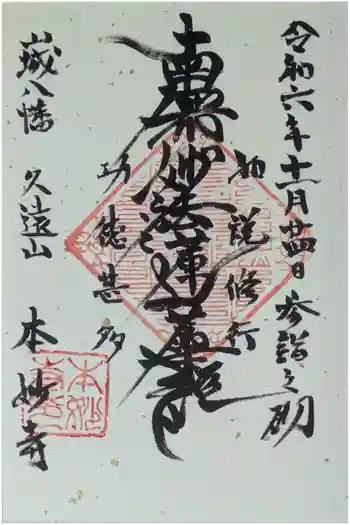 令和六年十一月廿四日 参詣之砌
如説修行
南無妙法蓮華経
功徳甚多
山城八幡 久遠山 本妙寺